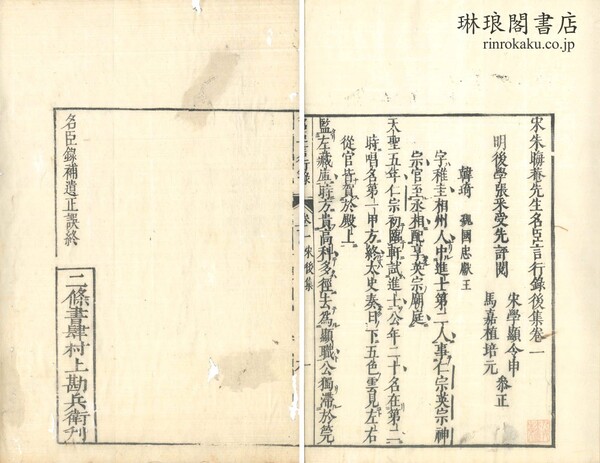 琳琅閣書店
rinrokaku.co.jp
宋朱晦菴先生名臣言行錄後集卷一
明後學張采受先評閱
宋學顯令申
馬嘉植培元
叅正
韓琦 魏國忠獻王
字稚圭相州人中進士第二人事仁宗英宗神
宗官至丞相配享英宗廟庭
天聖五年仁宗初臨軒試進士公年二十名在第二
時唱名第一甲方終太史奏日下五色雲見左右
從官皆賀於殿上
監左藏庫時方貴高科多徑去為顯職公獨滯於筦
卷一
宋後集
名臣錄補遺正誤終
二條書肆村上勘兵衛刋